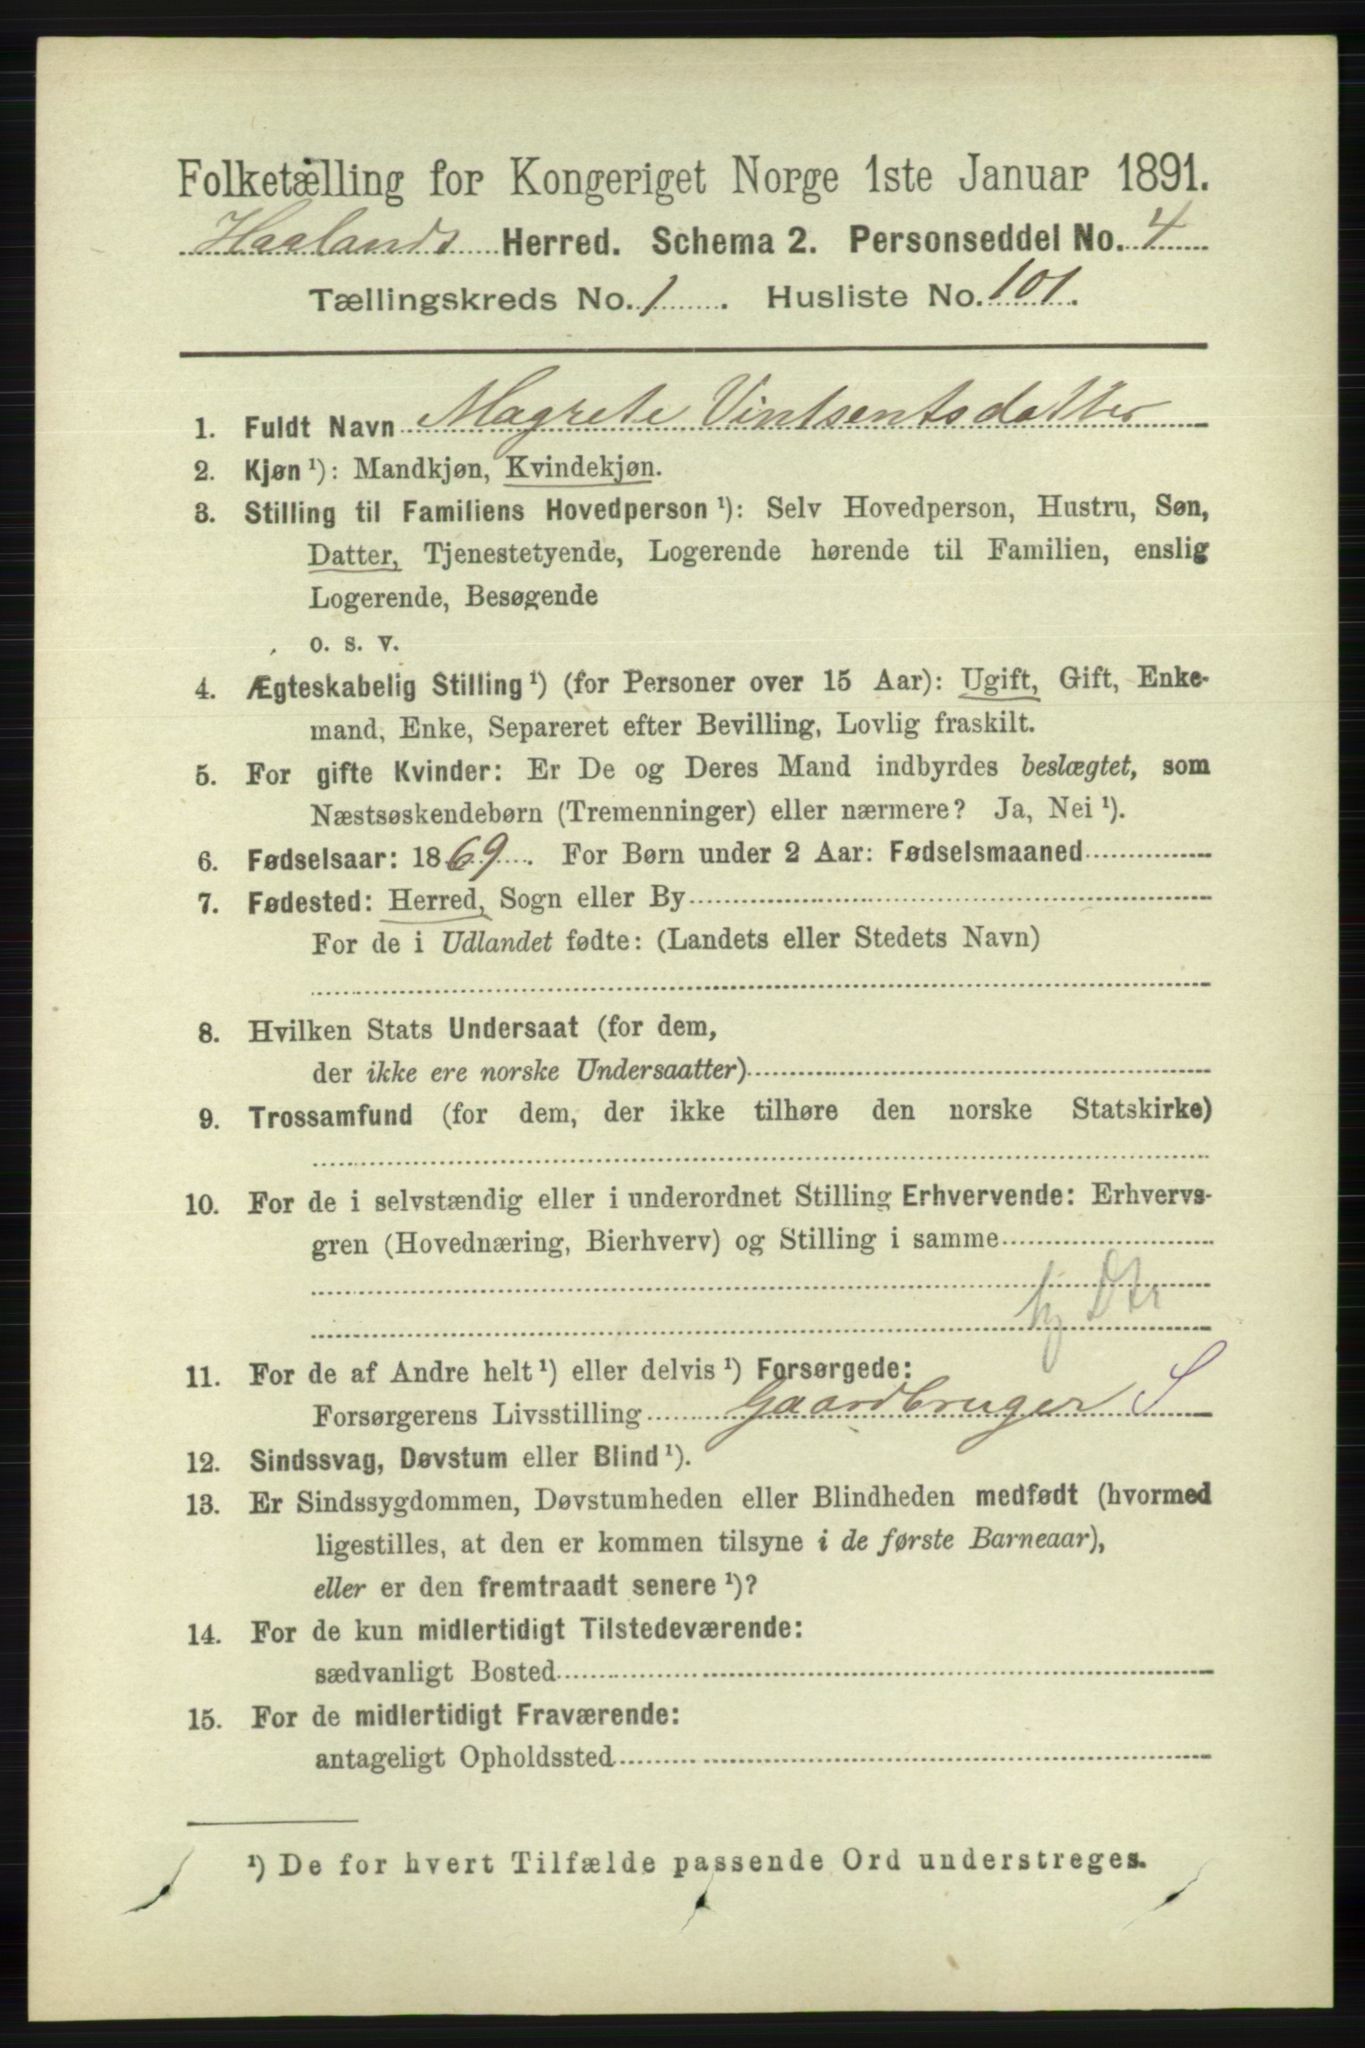 Folketælling for Kongeriget Norge 1ste Januar 1891.
Haalands Herred. Schema 2. Personseddel No. 4
Tællingskreds No. 1. Husliste No. 101.
1. Fuldt Navn Magrete Vintsentsdatter
2. Kjøn ¹): Mandkjøn, Kvindekjøn.
3. Stilling til Familiens Hovedperson ¹): Selv Hovedperson, Hustru, Søn,
Datter, Tjenestetyende, Logerende hørende til Familien, enslig
Logerende, Besøgende
o. s. v.
4. Ægteskabelig Stilling ¹) (for Personer over 15 Aar): Ugift, Gift, Enke-
mand, Enke, Separeret efter Bevilling, Lovlig fraskilt.
5. For gifte Kvinder: Er De og Deres Mand indbyrdes beslægtet, som
Næstsøskendebørn (Tremenninger) eller nærmere? Ja, Nei ¹).
6. Fødselsaar: 1869. For Børn under 2 Aar: Fødselsmaaned
7. Fødested: Herred, Sogn eller By
For de i Udlandet fødte: (Landets eller Stedets Navn)
8. Hvilken Stats Undersaat (for dem,
der ikke ere norske Undersaatter)
9. Trossamfund (for dem, der ikke tilhøre den norske Statskirke)
10. For de i selvstændig eller i underordnet Stilling Erhvervende: Erhvervs-
gren (Hovednæring, Bierhverv) og Stilling i samme
hj Dtr
11. For de af Andre helt ¹) eller delvis ¹) Forsørgede:
Forsørgerens Livsstilling Gaardbruger S
12. Sindssvag, Døvstum eller Blind ¹).
13. Er Sindssygdommen, Døvstumheden eller Blindheden medfødt (hvormed
ligestilles, at den er kommen tilsyne i de første Barneaar),
eller er den fremtraadt senere ¹)?
14. For de kun midlertidigt Tilstedeværende:
sædvanligt Bosted
15. For de midlertidigt Fraværende:
antageligt Opholdssted
¹) De for hvert Tilfælde passende Ord understreges.